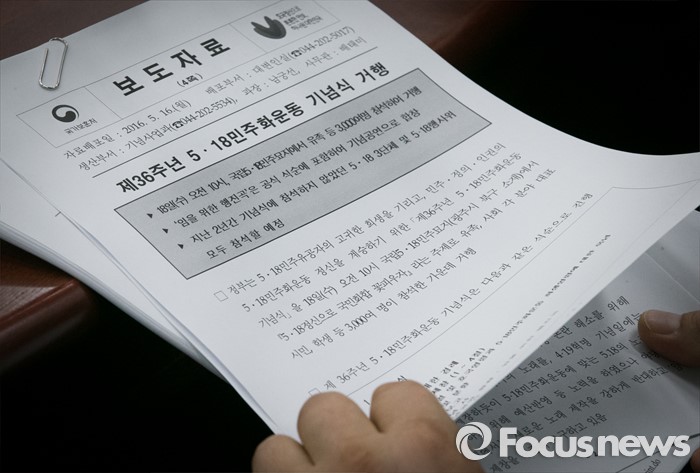 보도자료
(4쪽)
국가보훈처
자료배포일 : 2016. 5. 16.(월) 배포부서 : 대변인실(☎044-202-5017)
생산부서 : 기념사업과(☎044-202-5534), 과장 : 남궁선, 사무관 : 배태미
제36주년 5·18민주화운동 기념식 거행
▶ 18일(수) 오전 10시, 국립5·18민주묘지에서 유족 등 3,000여명 참석하여 거행
▶ '임을 위한 행진곡'은 공식 식순에 포함하여 기념공연으로 합창
▶ 지난 2년간 기념식에 참석하지 않았던 5·18 3단체 및 5·18행사위
모두 참석할 예정
□ 정부는 5·18민주유공자의 고귀한 희생을 기리고, 민주·정의·인권의
5·18민주화운동 정신을 계승하기 위한 「제36주년 5·18민주화운동
기념식」을 18일(수) 오전 10시 국립5·18민주묘지(광주시 북구 소재)에서
'5·18정신으로 국민화합 꽃피우자'라는 주제로 유족, 사회 각 분야 대표
시민, 학생 등 3,000여 명이 참석한 가운데 거행
□ 제 36주년 5·18민주화운동 기념식은 다음과 같은 식순으로 진행
해소를 위해
노래를, 4·19혁명 기념일에는
5·18민주화운동에 맞는 5·18의 노래를
위해 예산반영 등 노력을
노래 제작을 강하게 반대하고
있음
Focusnews